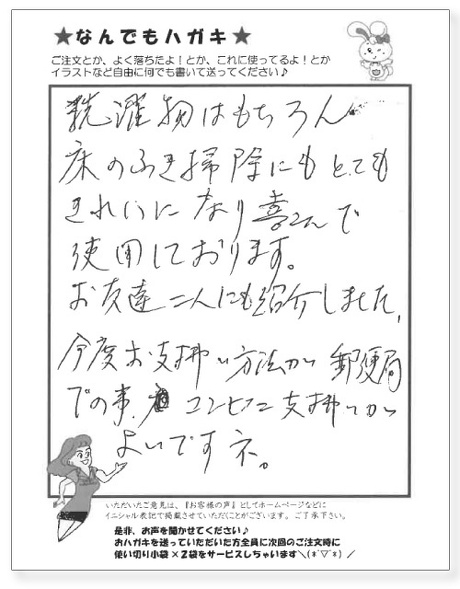 ★なんでもハガキ★
ご注文とか、よく落ちたよ！とか、これに使ってるよ！とか
イラストなど自由に何でも書いて送ってください♪
洗濯物はもちろん
床のふき掃除にもとても
きれいになり喜んで
使用しております。
お友達二人にも紹介しました。
今度お支払い方法が郵便局
での事、コンビニ支払いが
よいですネ。
いただいたご意見は、『お客様の声』としてホームページなどに
イニシャル表記で掲載させていただくことがございます。ご了承下さい。
是非、お声を聞かせてください♪
おハガキを送っていただいた方全員に次回のご注文時に
使い切り小袋×2袋をサービスしちゃいます＼(*ˆ▽ˆ*)／